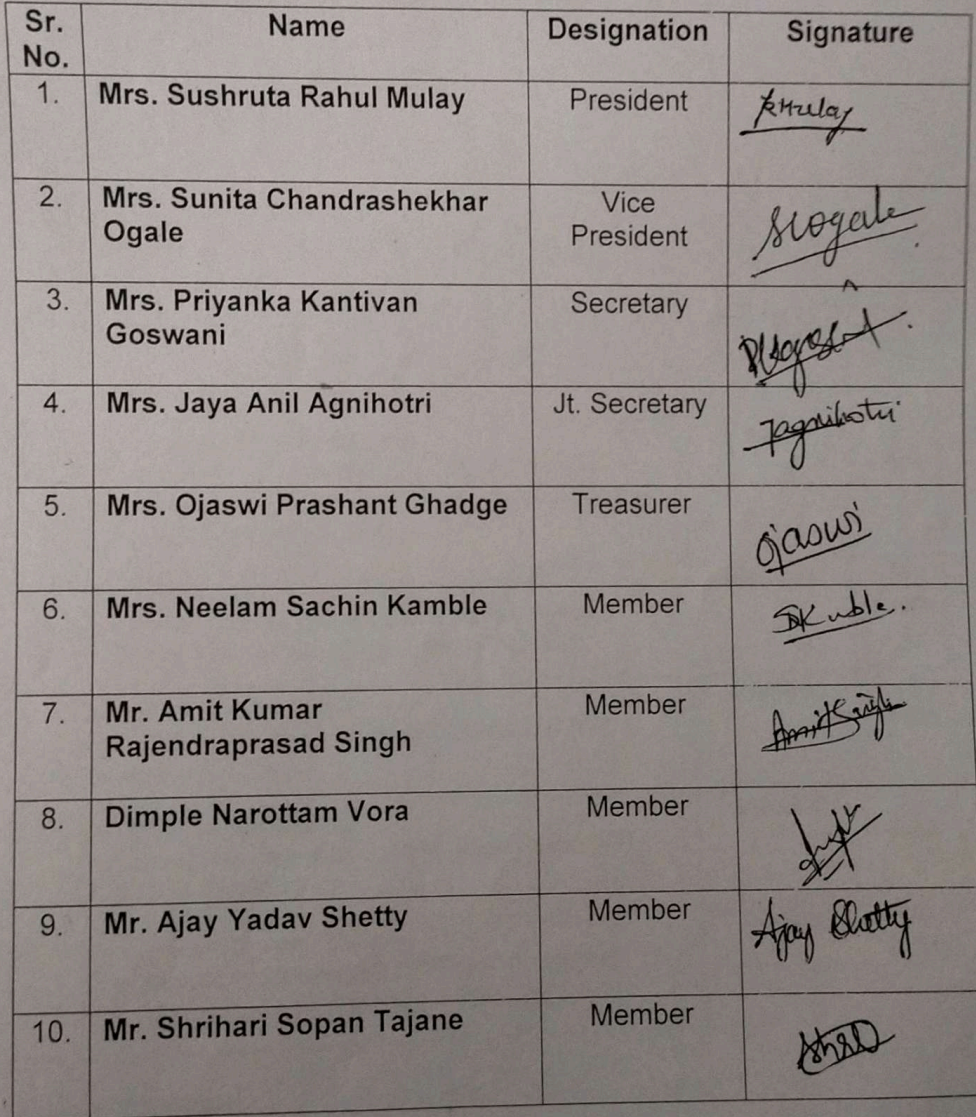 Sr. No. Name Designation Signature
1. Mrs. Sushruta Rahul Mulay President
2. Mrs. Sunita Chandrashekhar Vice
Ogale President SCOgale
3. Mrs. Priyanka Kantivan Secretary
Goswani
4. Mrs. Jaya Anil Agnihotri Jt. Secretary Jagnihotri
5. Mrs. Ojaswi Prashant Ghadge Treasurer Ojaswi
6. Mrs. Neelam Sachin Kamble Member
7. Mr. Amit Kumar Member
Rajendraprasad Singh Amit Singh
8. Dimple Narottam Vora Member
9. Mr. Ajay Yadav Shetty Member Ajay Shetty
10. Mr. Shrihari Sopan Tajane Member